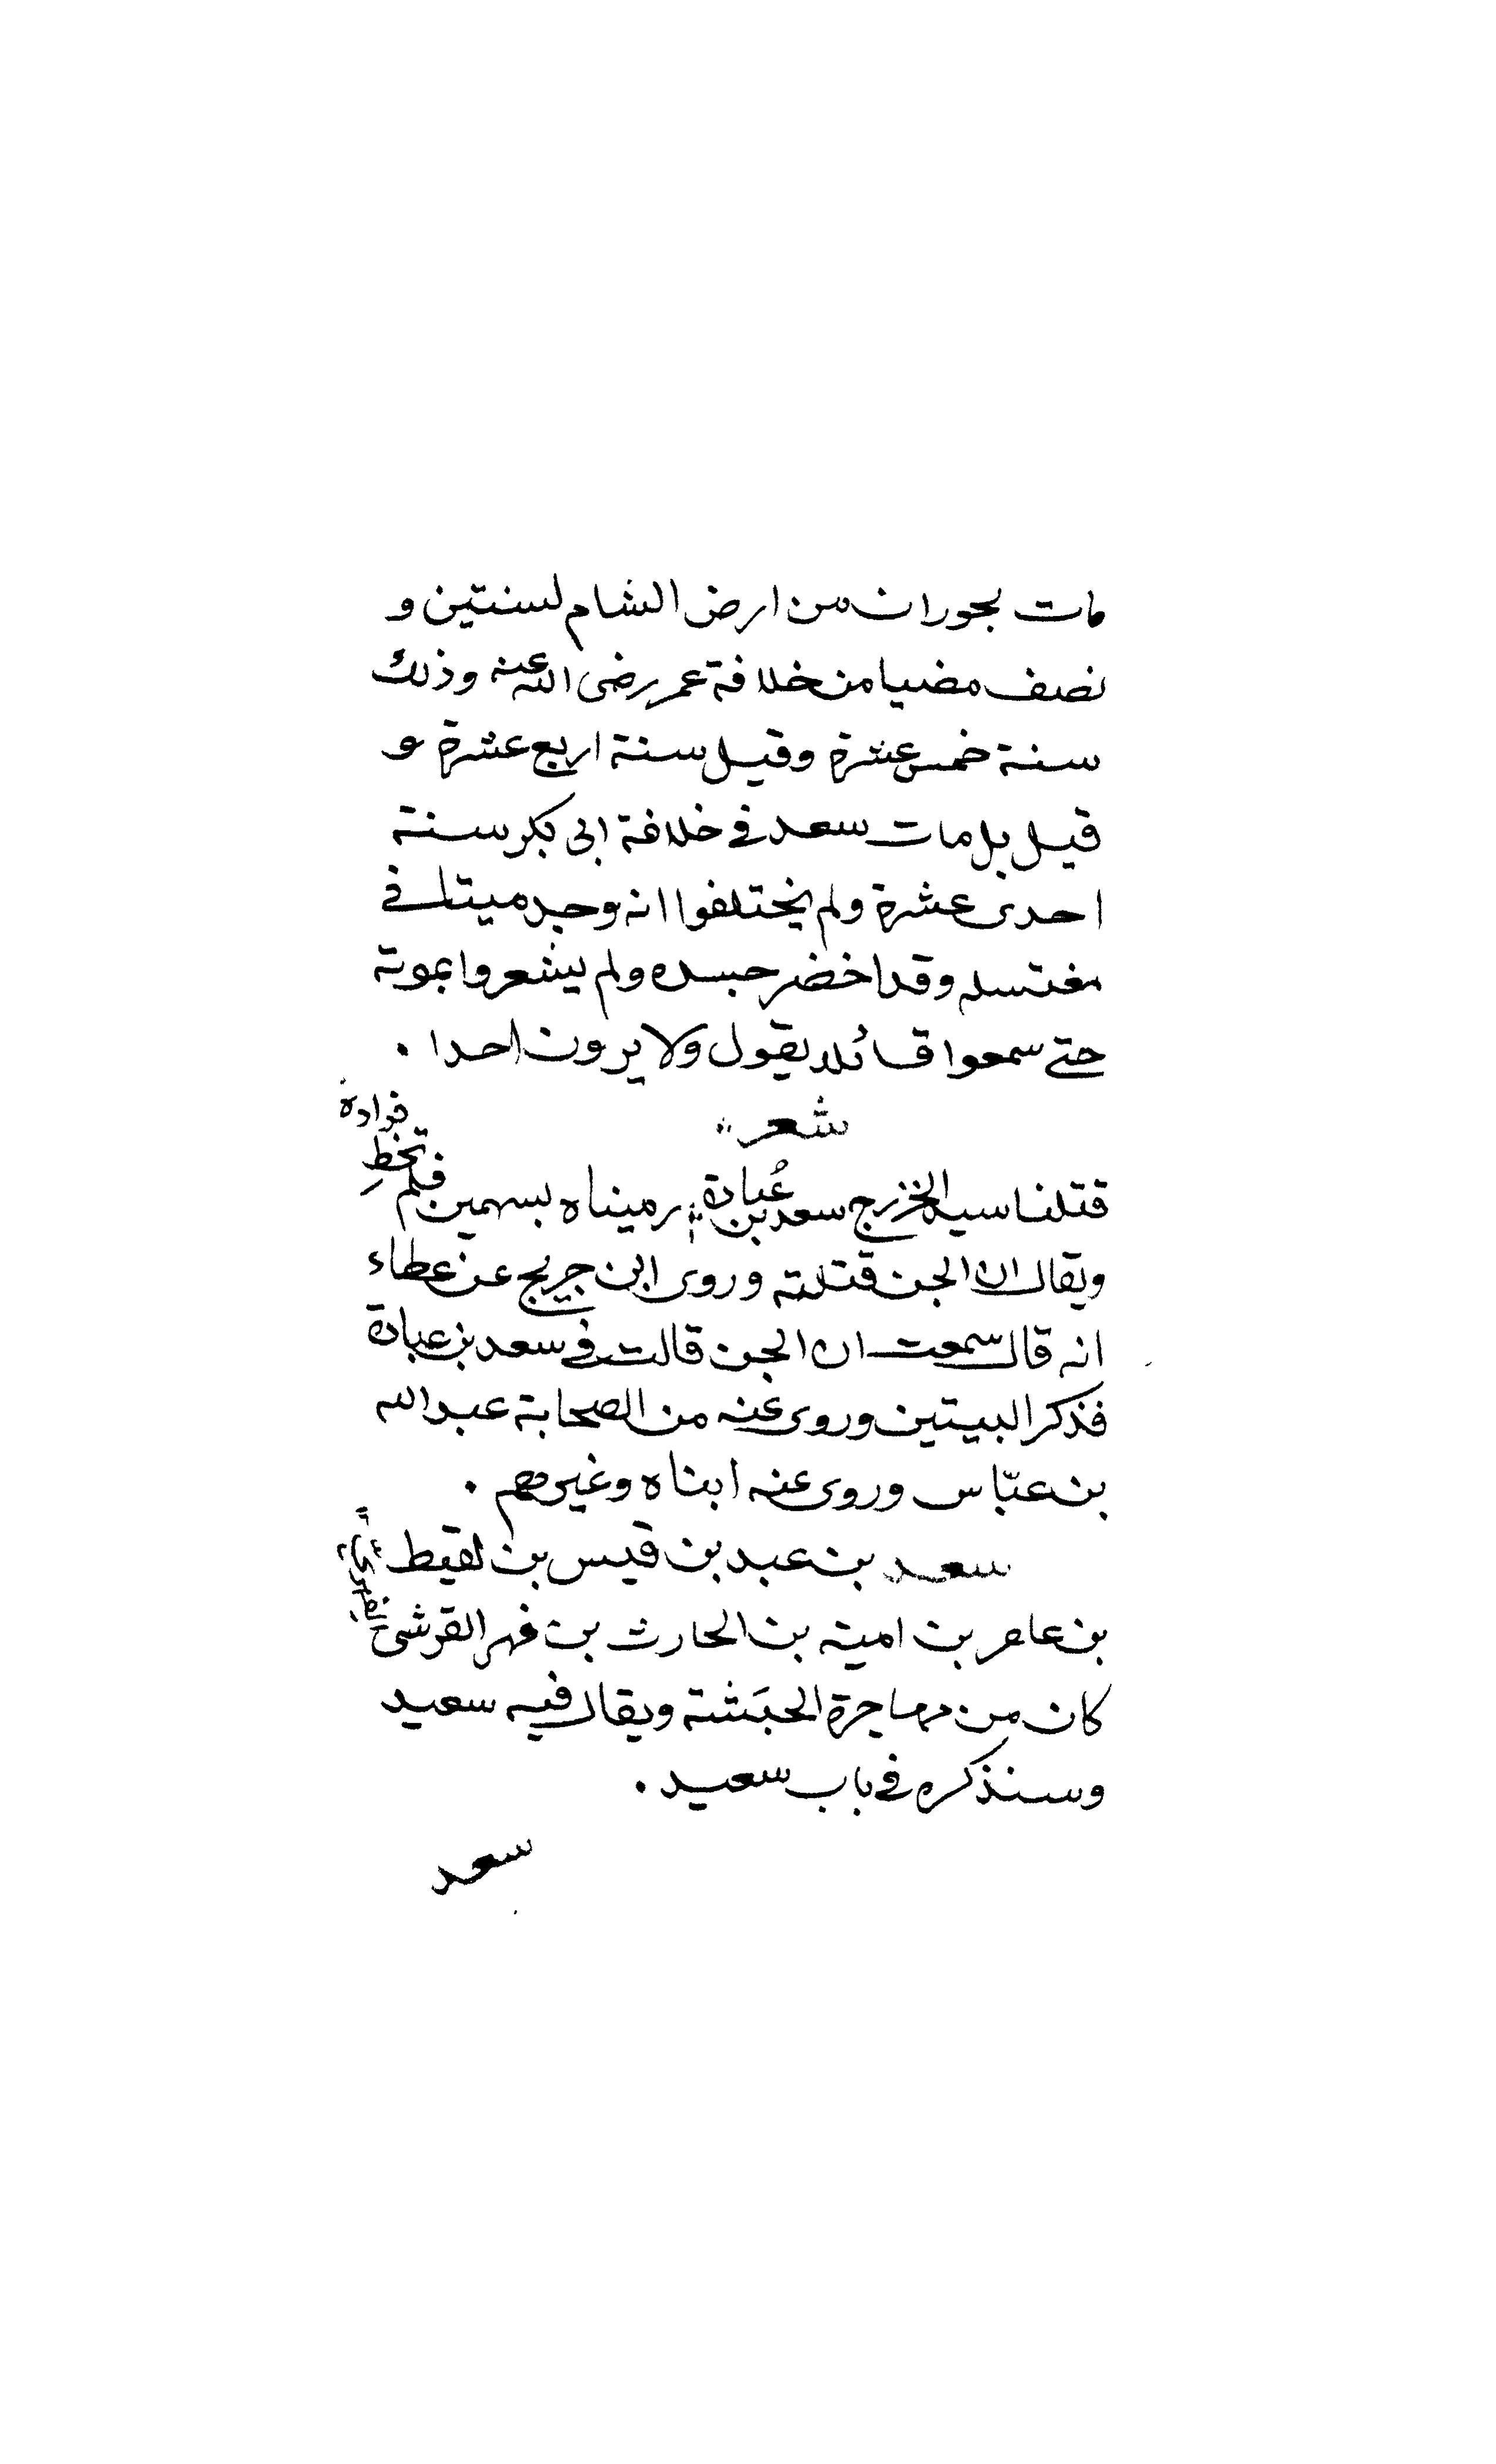 مات بحوران من ارض الشام لسنتين و
نصف مضيا من خلافة عمر رضى الله عنه وذلك
سنة خمس عشرة وقيل سنة اربع عشرة و
قيل بل مات سعد في خلافة ابى بكر سنة
احدى عشرة ولم يختلفوا انه وجد ميتا في
مغتسله وقد اخضر جسده ولم يشعروا بموته
حتى سمعوا قائلا يقول ولا يرون احدا .
شعر
قتلنا سيد الخزرج سعد بن عُبادة رميناه بسهمين فلم تخطِ فواده
ويقال ان الجن قتلته وروى ابن جريج عن عطاء
انه قال سمعت ان الجن قالت في سعد بن عبادة
فذكر البيتين وروى عنه من الصحابة عبد الله
بن عبّاس وروى عنه ابناه وغيرهم .
سعد بن عبد بن قيس بن لقيط
بن عامر بن امية بن الحارث بن فهر القرشى
كان من مهاجرة الحبَشة ويقال فيه سعيد
وسنذكره في باب سعيد .
سعد